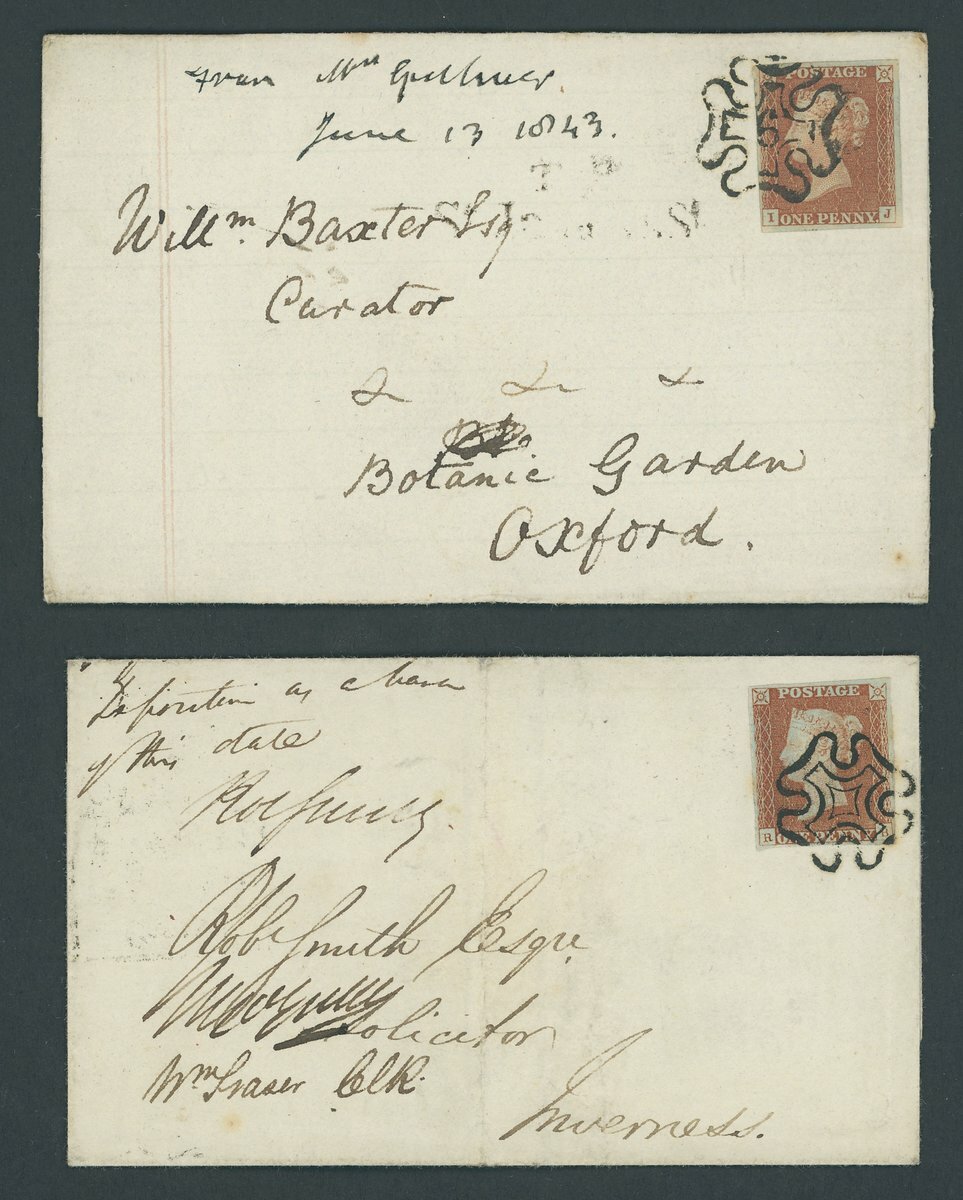 From Mrs
June 13 1843.
POSTAGE
6
I ONE PENNY J
T.P
Willm. Baxter Esq
Curator
& & &
Botanic Garden
Oxford.
of this date
POSTAGE
R ONE PENNY
Robt Smith Esqre.
Solicitor
Wm Fraser Clk.
Inverness.